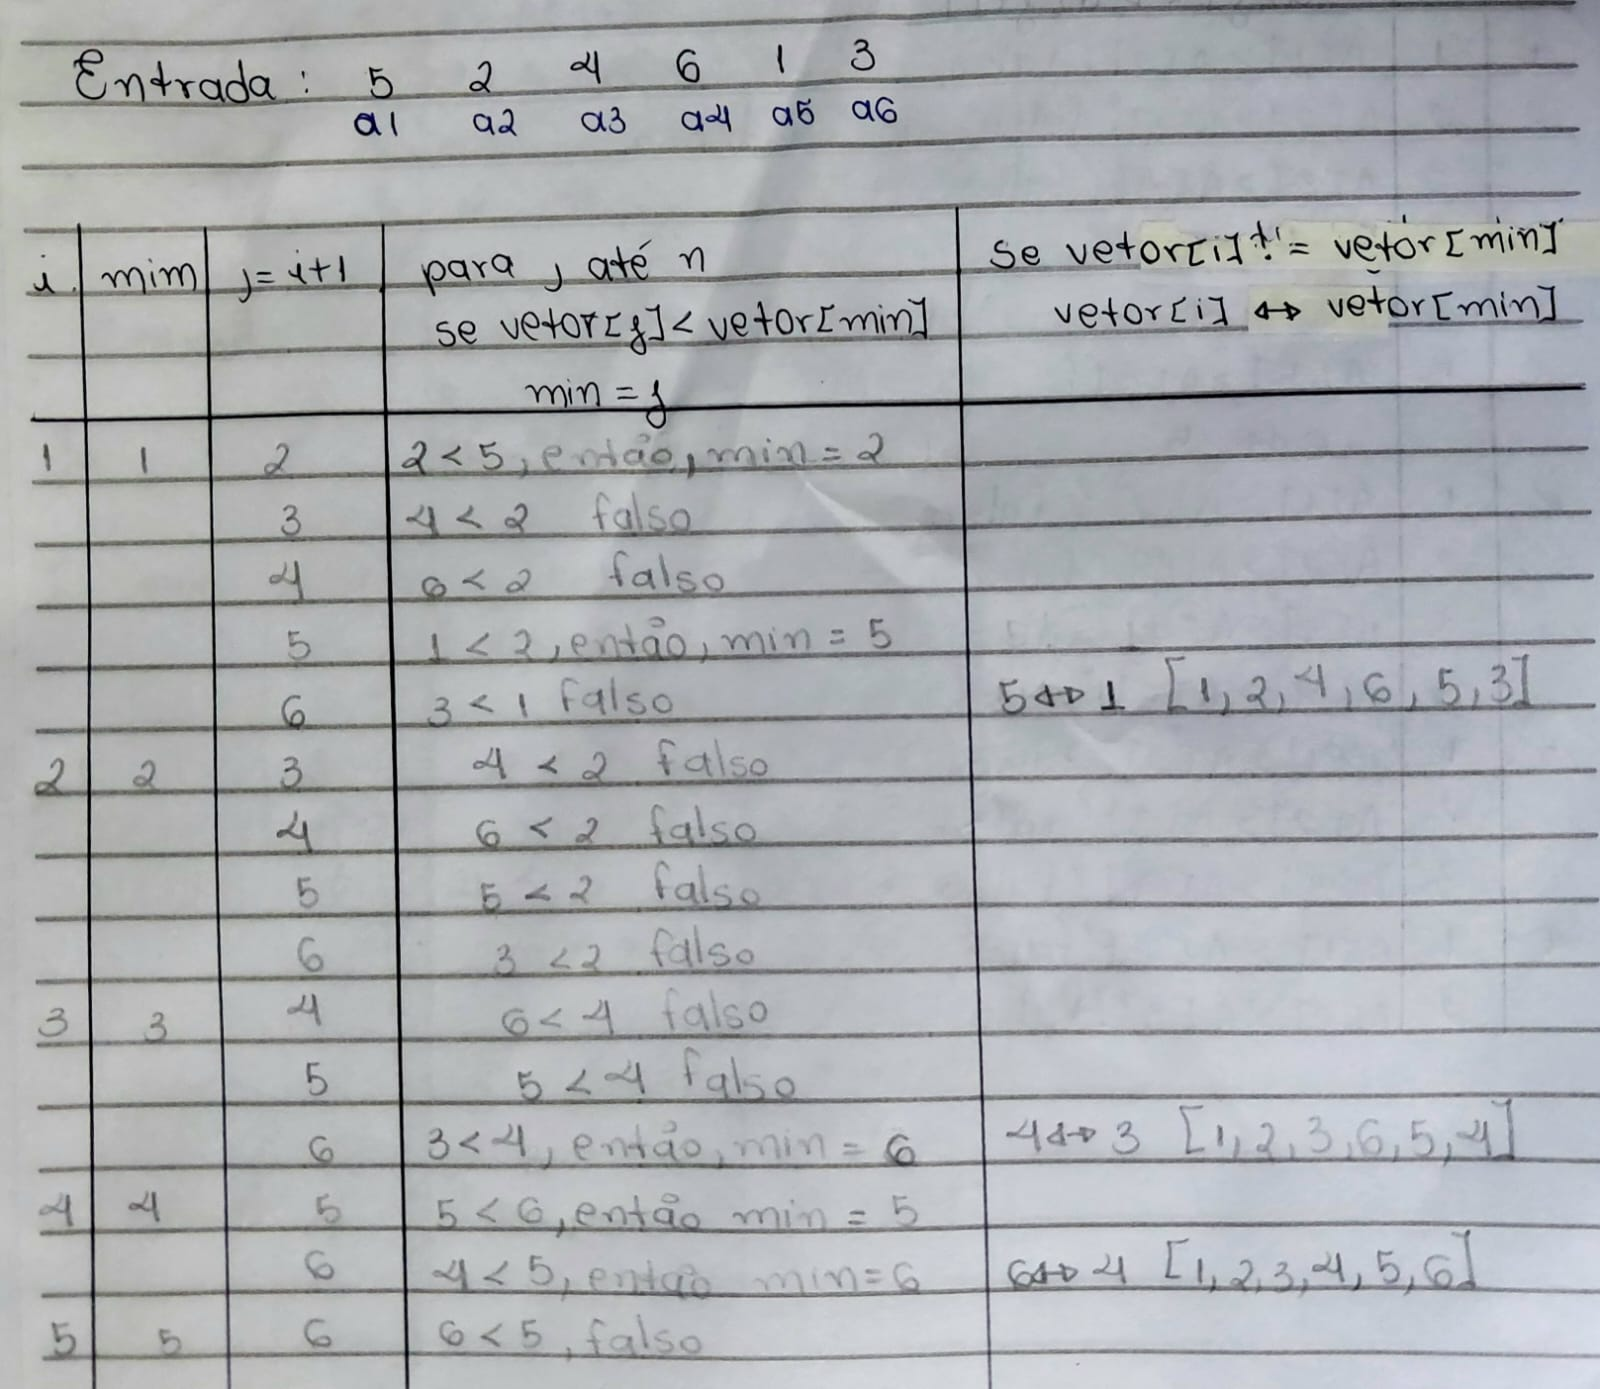 Entrada: 5 2 4 6 1 3
a1 a2 a3 a4 a5 a6
i mim j=i+1 para j até n se vetor[i] != vetor[min]
se vetor[j] < vetor[min] vetor[i] ↔ vetor[min]
min = j
1 1 2 2 < 5, então, min = 2
3 4 < 2 falso
4 6 < 2 falso
5 1 < 2, então, min = 5
6 3 < 1 falso 5 ↔ 1 [1, 2, 4, 6, 5, 3]
2 2 3 4 < 2 falso
4 6 < 2 falso
5 5 < 2 falso
6 3 < 2 falso
3 3 4 6 < 4 falso
5 5 < 4 falso
6 3 < 4, então, min = 6 4 ↔ 3 [1, 2, 3, 6, 5, 4]
4 4 5 5 < 6, então min = 5
6 4 < 5, então min = 6 6 ↔ 4 [1, 2, 3, 4, 5, 6]
5 5 6 6 < 5, falso